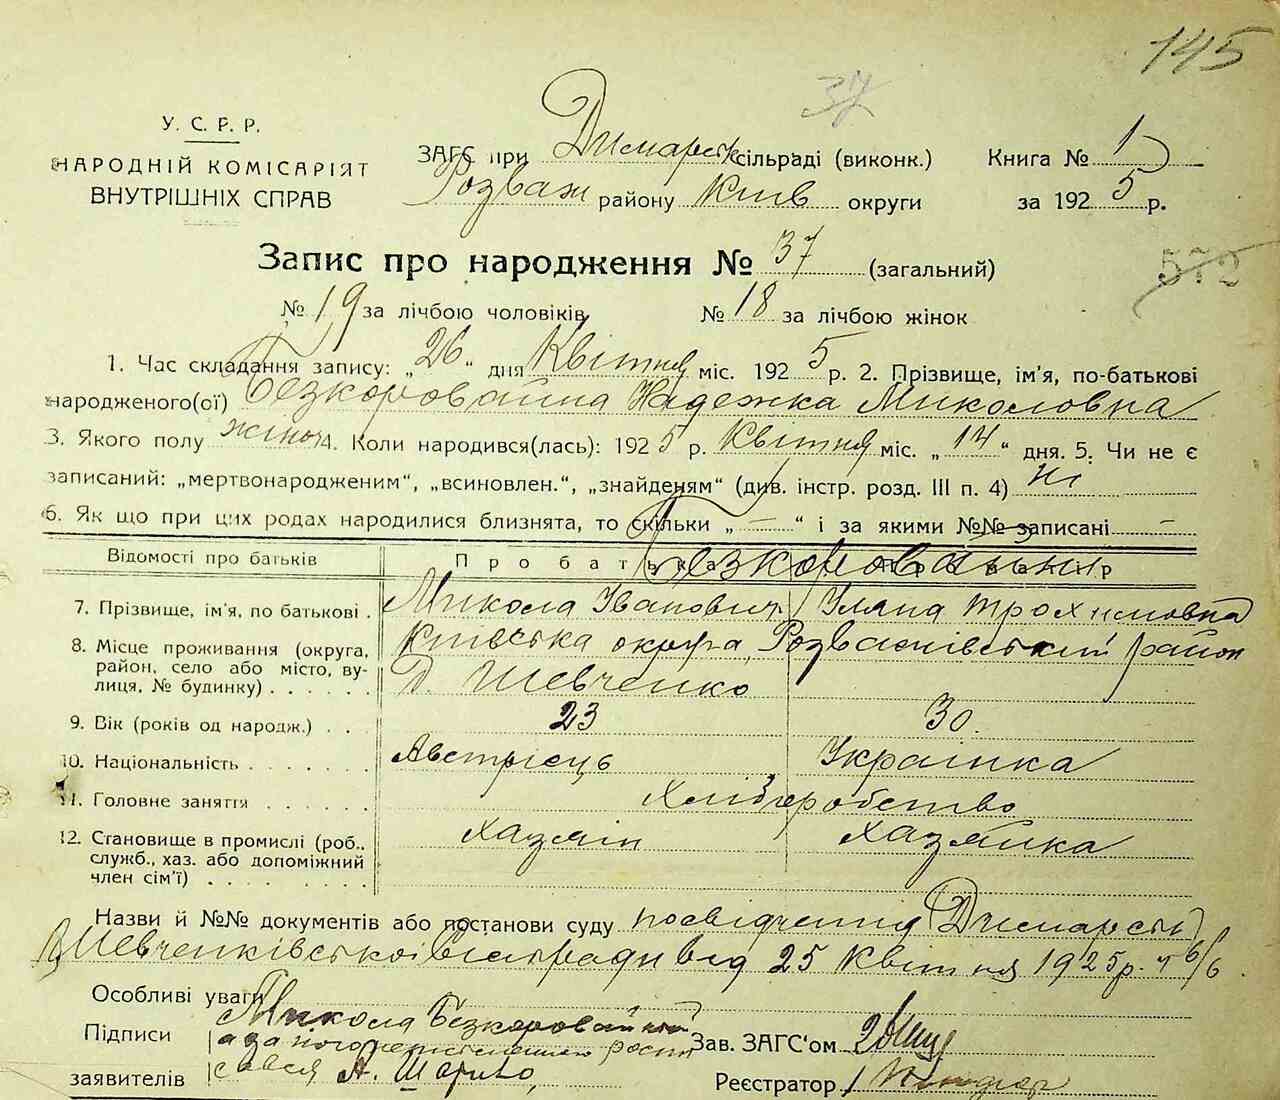 145
37
У. С. Р. Р.
НАРОДНІЙ КОМІСАРІЯТ
ВНУТРІШНІХ СПРАВ
ЗАГС при Димарськ сільраді (виконк.) Книга № 1
Розваж району Київ округи за 1925 р.
Запис про народження № 37 (загальний)
572
№ 19 за лічбою чоловіків № 18 за лічбою жінок
1. Час складання запису: „26“ дня Квітня міс. 1925 р. 2. Прізвище, ім'я, по-батькові
народженого(ої) Безкоровайна Надежка Миколовна
3. Якого полу жіноч 4. Коли народився(лась): 1925 р. Квітня міс. „14“ дня. 5. Чи не є
записаний: „мертвонародженим“, „всиновлен.“, „знайденям“ (див. інстр. розд. III п. 4) Ні
6. Як що при цих родах народилися близнята, то скільки „—“ і за якими №№ записані —
Відомості про батьків Про батька
Безкоровайни
7. Прізвище, ім'я, по батькові . Микола Іванович Уляна Трохимовна
8. Місце проживання (округа, район, село або місто, вулиця, № будинку) . . . . . Київська округа, Розважівський район
Д. Шевченко
9. Вік (років од народж.) . . . 23 30.
10. Національність . . . . . . . Австрієць Українка
11. Головне заняття . . . . . . Хліборобство
12. Становище в промислі (роб., Хазяін Хазяйка
служб., хаз. або допоміжний
член сім'ї) . . . . . . . .
Назви й №№ документів або постанови суду посвідчення Димарськ
Шевченківської сільради від 25 Квітня 1925 р. ч б/б
Особливі уваги
Підписи Микола Безкоровайний
а за його неписьменного розпи Зав. ЗАГС'ом
заявителів сався А. Реєстратор